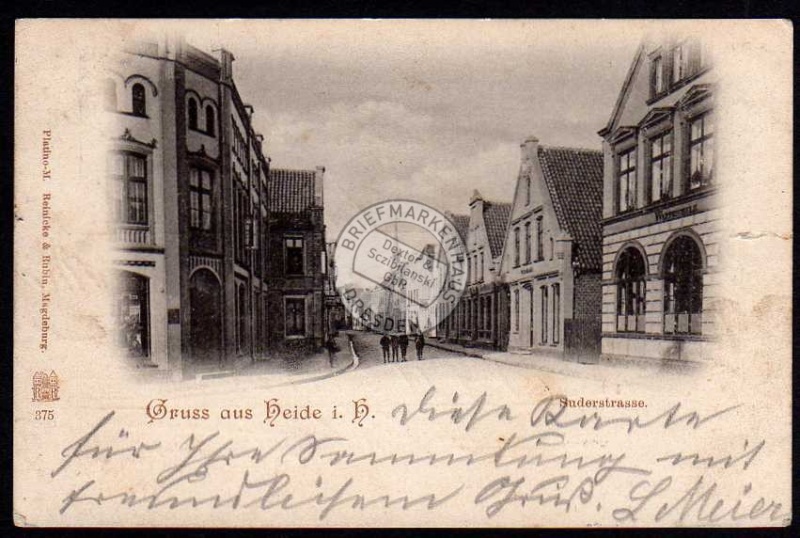 BRIEFMARKENHAUS
Dexter &
Scziblanski
GbR
DRESDEN
Platino-M. Reinicke & Rubin, Magdeburg.
375
Gruss aus Heide i. H.
Suderstrasse.
diese Karte
für Ihre Sammlung mit
freundlichem Gruß. L Meier